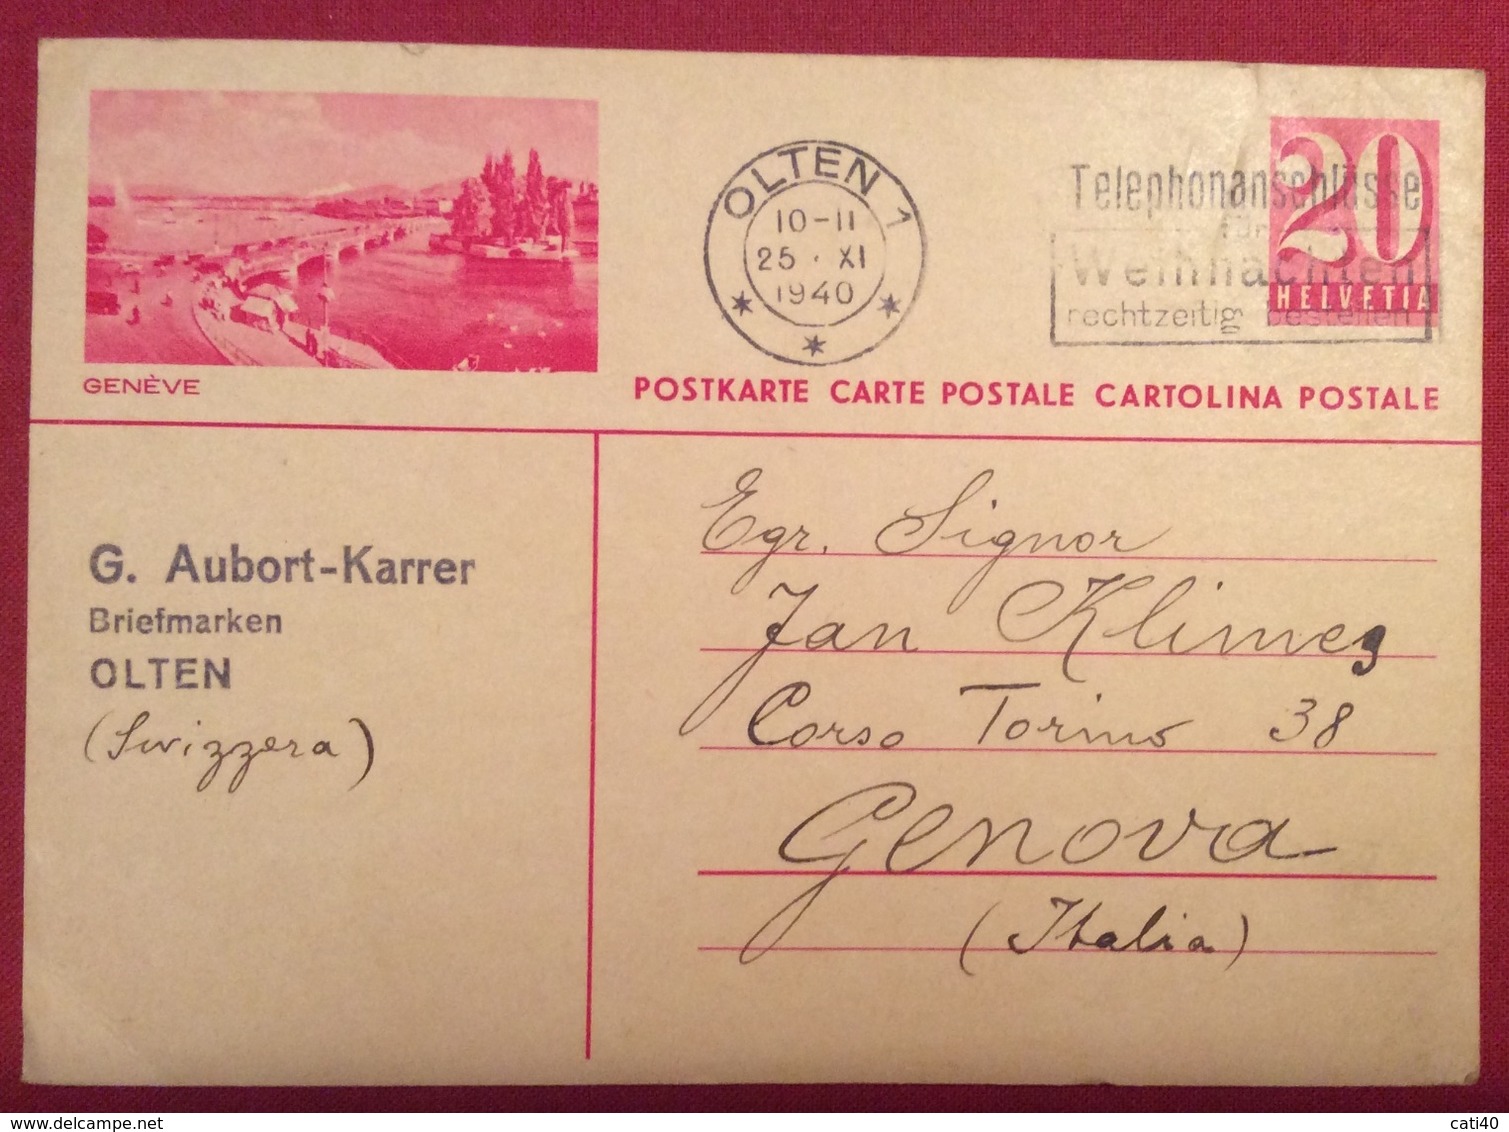 GENÈVE
OLTEN 1
10-11
25 · XI
1940
Telephonanschlüsse
für
Weihnachten
rechtzeitig bestellen
20
HELVETIA
POSTKARTE CARTE POSTALE CARTOLINA POSTALE
G. Aubort-Karrer
Briefmarken
OLTEN
(Svizzera)
Egr. Signor
Jan Klimeš
Corso Torino 38
Genova
(Italia)
cati40